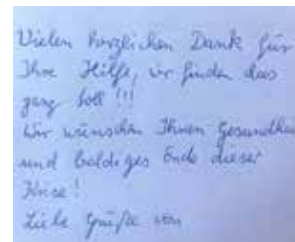 Vielen herzlichen Dank für
Ihre Hilfe, wir finden das
ganz toll !!!
Wir wünschen Ihnen Gesundhei
und baldiges Ende dieser
Krise !
Liebe Grüße von